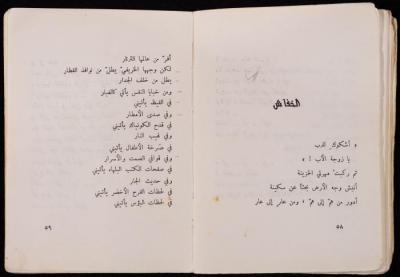 الخفاش
« أشكوك للرب
يا زوجة الأب ! »
ثم ركبت مهرتي الحزينة
أنبش وجه الأرض بحثاً عن سكينة
أدور من همّ إلى همّ ، ومن عار إلى عار
٥٨
أفرّ من عالمها الثرثار
لكن وجهها الخريفيّ يطلّ من نوافذ القطار
يطل من خلف الجدار
ومن خبايا النفس يأتي كالغبار
في القيظ يأتيني
وفي صدى الأمطار
في قدح الكونياك يأتيني
وفي لهيب النار
في صرخة الأطفال يأتيني
وفي قوافي الصمت والأسرار
في صفحات الكتب البلهاء يأتيني
وفي حديث الجار
في لحظات الفرح الأخضر يأتيني
في لحظات البؤس يأتيني
٥٩